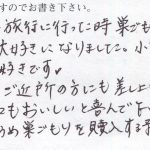 すのでお書き下さい。
旅行に行った時巣ごも
大好きになりました。小
好きです♥
ご近所の方にも差し
てもおいしいと喜んで
め巣ごもりを購入する予